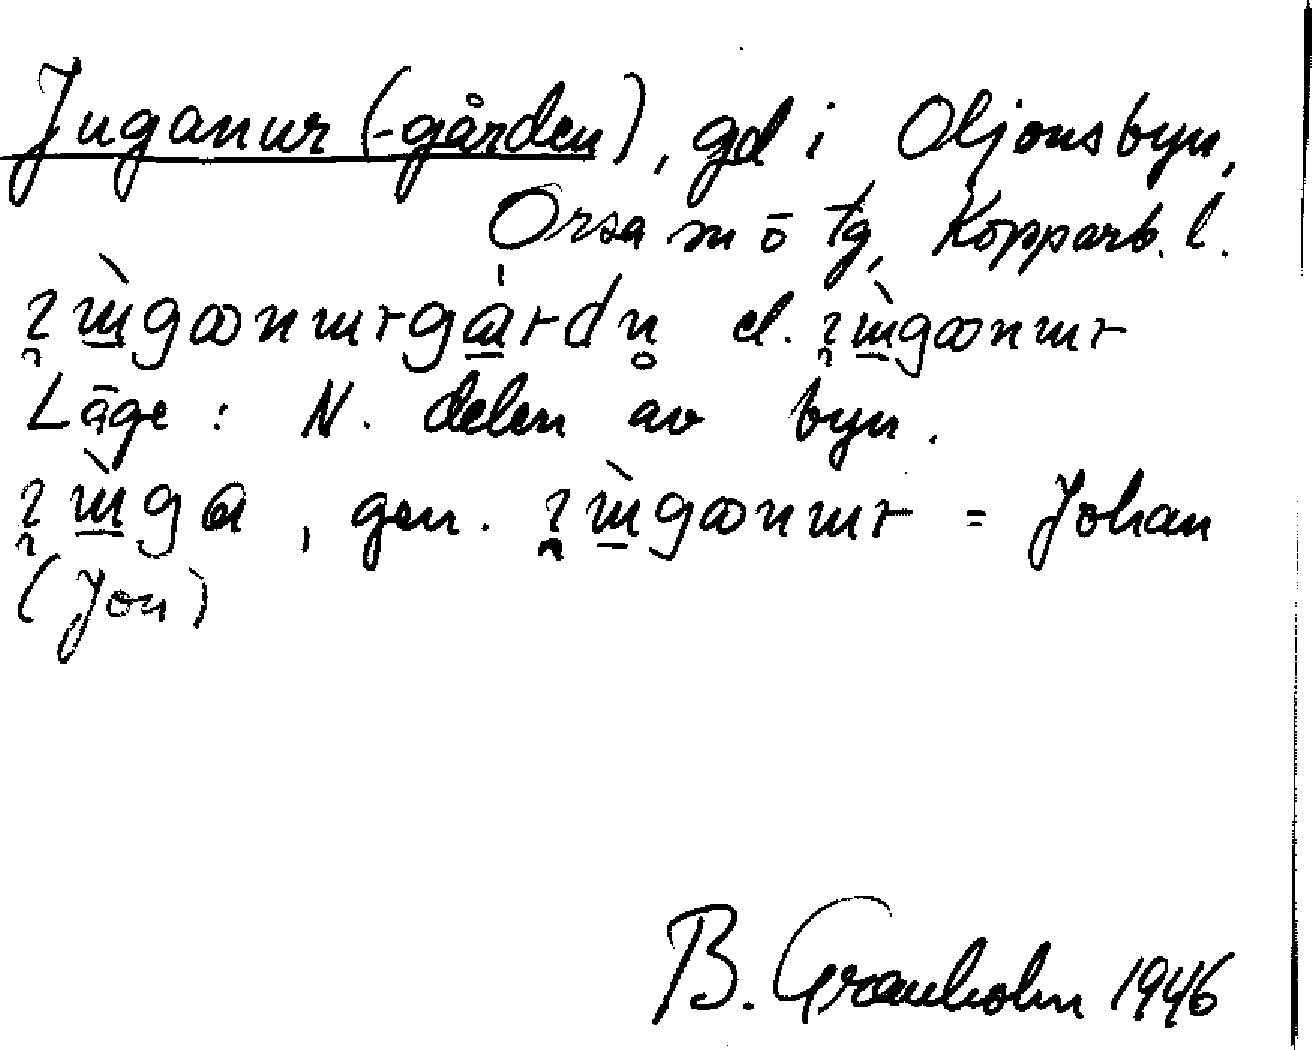 Juganur (-gården), gd i Oljonsbyn,
Orsa sn ō tg, Kopparb. l.
el.
Läge: N. delen av byn.
, gen. = Johan
(Jon)
B. Granholm 1946